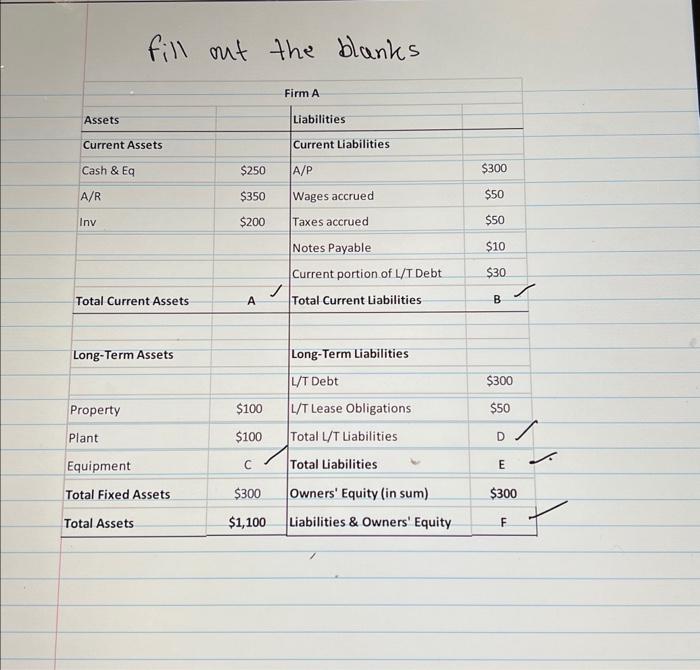 fill out the blanks
Firm A
Assets Liabilities
Current Assets Current Liabilities
Cash & Eq $250 A/P $300
A/R $350 Wages accrued $50
Inv $200 Taxes accrued $50
Notes Payable $10
Current portion of L/T Debt $30
Total Current Assets A Total Current Liabilities B
Long-Term Assets Long-Term Liabilities
L/T Debt $300
Property $100 L/T Lease Obligations $50
Plant $100 Total L/T Liabilities D
Equipment C Total Liabilities E
Total Fixed Assets $300 Owners' Equity (in sum) $300
Total Assets $1,100 Liabilities & Owners' Equity F